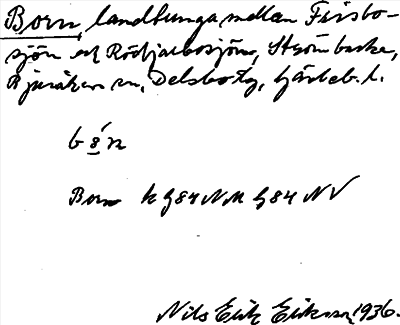 Born, landtunga mellan Frisbo-
sjön och Rödjarbosjön, Strömbacka,
Bjuråkers sn, Delsbo tg, Gävleb. l.
b8́n
Born k G84 NM G84 NV
Nils Erik Eriksson, 1936.